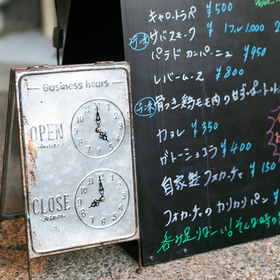 Business hours
OPEN
CLOSE
キャロットラペ ¥500
サバスモーク
¥1,000
パテドカンパーニュ ¥950
レバームース ¥800
骨つき鶏モモ肉の
カヌレ ¥350
ガトーショコラ ¥400
自家製フォカッチャ ¥150
フォカッチャのカリカリパン ¥
呑み足りない!そんな時の